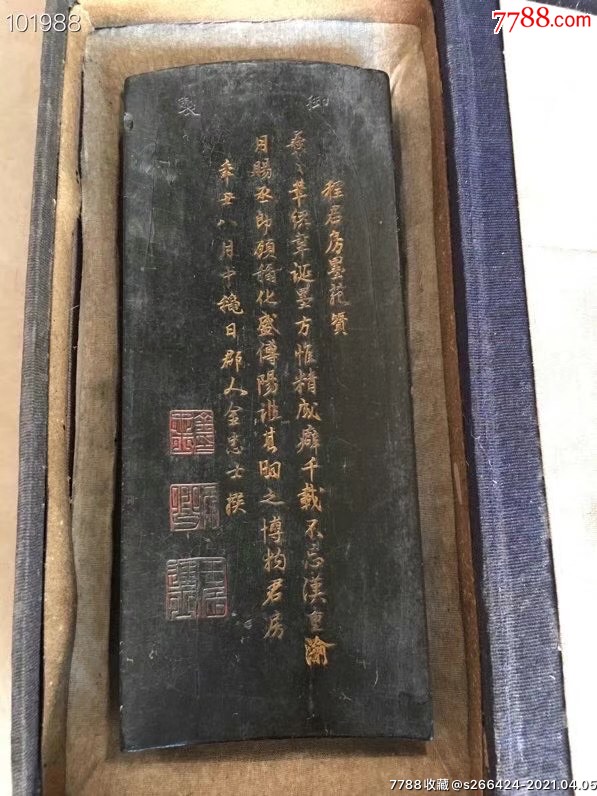 101988
7788.com
御製
程君房墨苑贊
羲之萃繹章誕墨方惟精成癖千載不忘漢重渝
月賜丞郎顏指化盛傳陽誰其昭之博物君房
辛丑八月中穐日郡人金忠士撰
7788收藏@s266424-2021.04.05